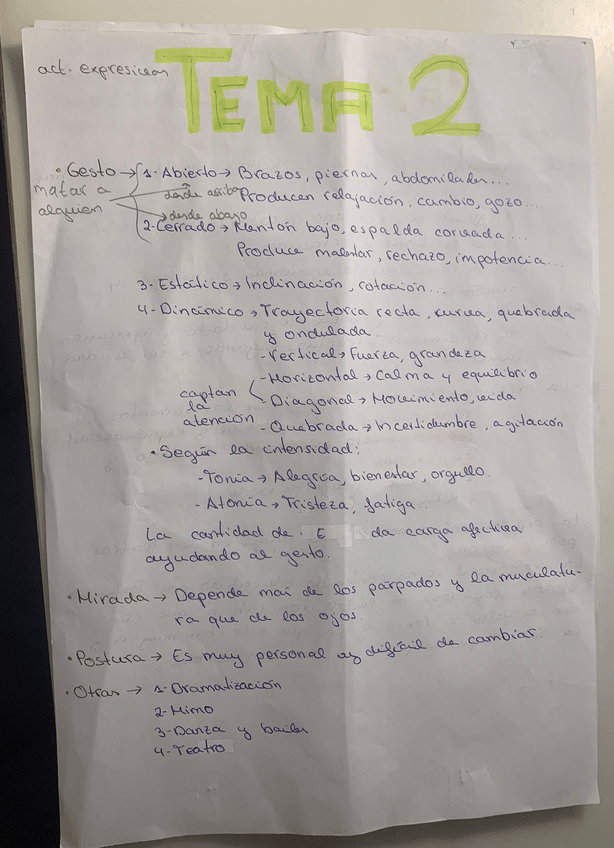 act. expresivas
TEMA 2
• Gesto → 1- Abierto → Brazos, piernas, abdominales...
matar a alguien
desde arriba
→ desde abajo
Producen relajación, cambio, gozo...
2- Cerrado → Mentón bajo, espalda corvada...
Produce malestar, rechazo, impotencia...
3- Estático → Inclinación, rotación...
4- Dinámico → Trayectoria recta, curva, quebrada
y ondulada.
- Vertical → Fuerza, grandeza
captan la atención
- Horizontal → Calma y equilibrio
- Diagonal → Movimiento, vida
- Quebrada → Incertidumbre, agitación
• Según la intensidad:
- Tonía → Alegría, bienestar, orgullo.
- Atonía → Tristeza, fatiga
La cantidad de E da carga afectiva
ayudando al gesto.
• Mirada → Depende mai de los párpados y la musculatu-
ra que de los ojos.
• Postura → Es muy personal y difícil de cambiar.
• Otras → 1- Dramatización
2- Mimo
3- Danza y bailes
4- Teatro